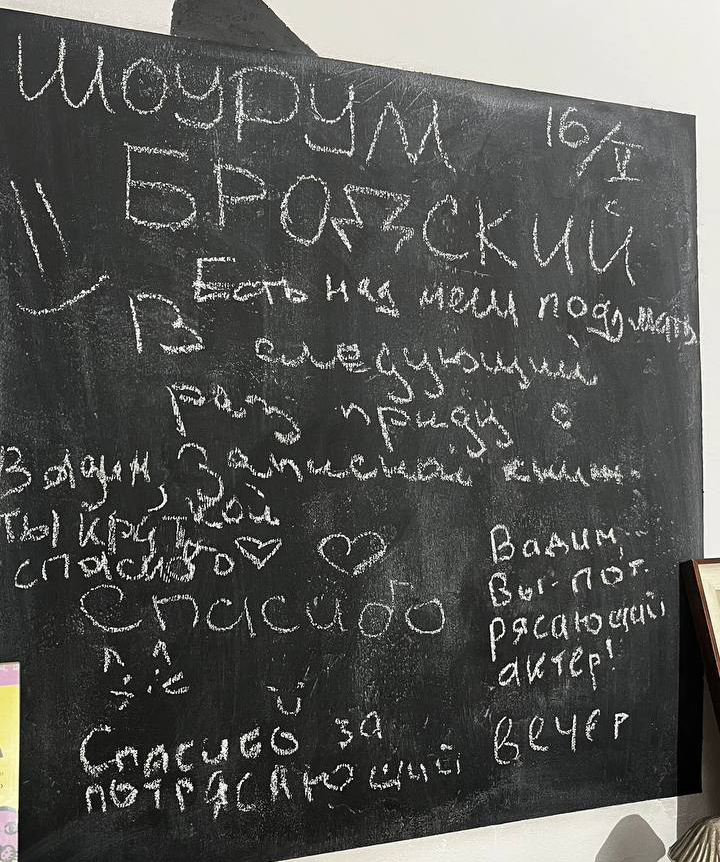 ШОУРУМ
16/V
БРОДСКИЙ
Есть над чем подумать
В следующий
раз приду с
записной книж-
кой
Вадим,
ты крут
спасибо ♡ ♡
Спасибо
Вадим
Вы-пот-
рясающий
актёр!
Спасибо за
потрясающий вечер